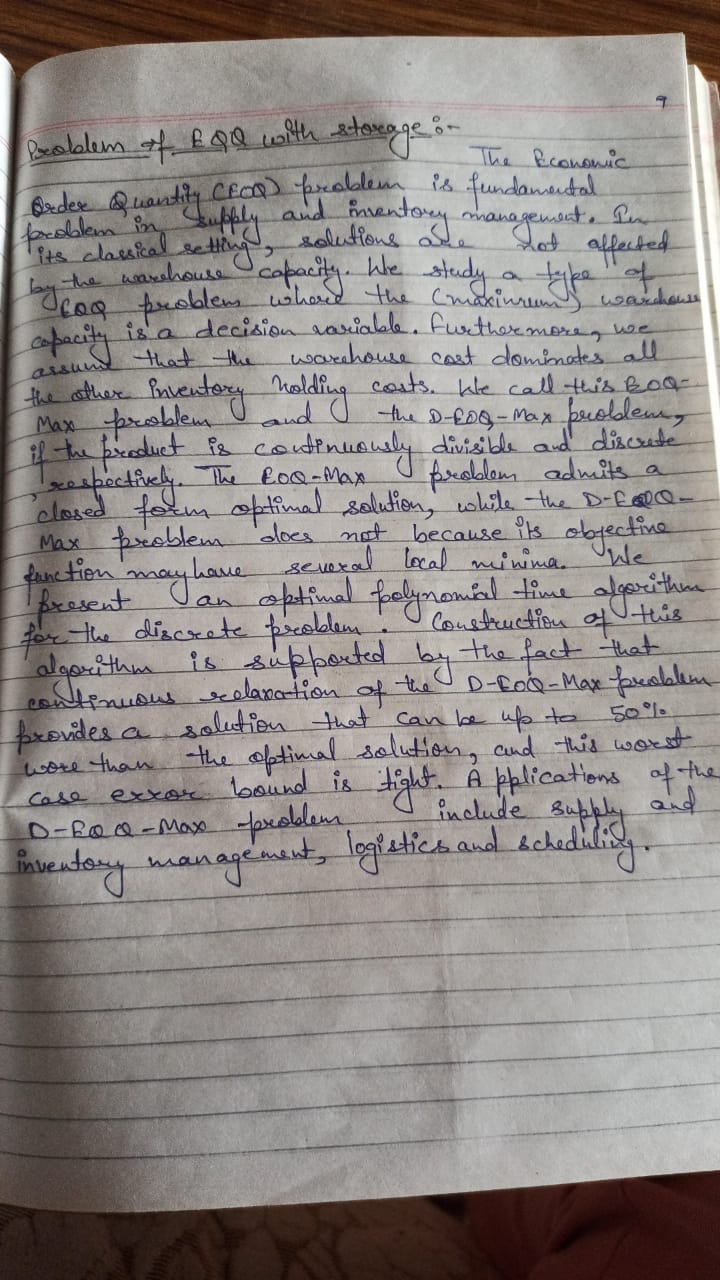 9
Problem of EOQ with storage :-
The Economic
Order Quantity (EOQ) problem is fundamental
problem in supply and inventory management. In
its classical setting, solutions are not affected
by the warehouse capacity. We study a type of
EOQ problem where the (maximum) warehouse
capacity is a decision variable. Furthermore, we
assume that the warehouse cost dominates all
the other inventory holding costs. We call this EOQ-
Max problem and the D-EOQ-Max problem,
if the product is continuously divisible and discrete
, respectively. The EOQ-Max problem admits a
closed form optimal solution, while the D-EOQ-
Max problem does not because its objective
function may have several local minima. We
present an optimal polynomial time algorithm
for the discrete problem. Construction of this
algorithm is supported by the fact that
continuous relaxation of the D-EOQ-Max problem
provides a solution that can be up to 50%
wore than the optimal solution, and this worst
case error bound is tight. Applications of the
D-EOQ-Max problem include supply and
inventory management, logistics and scheduling.